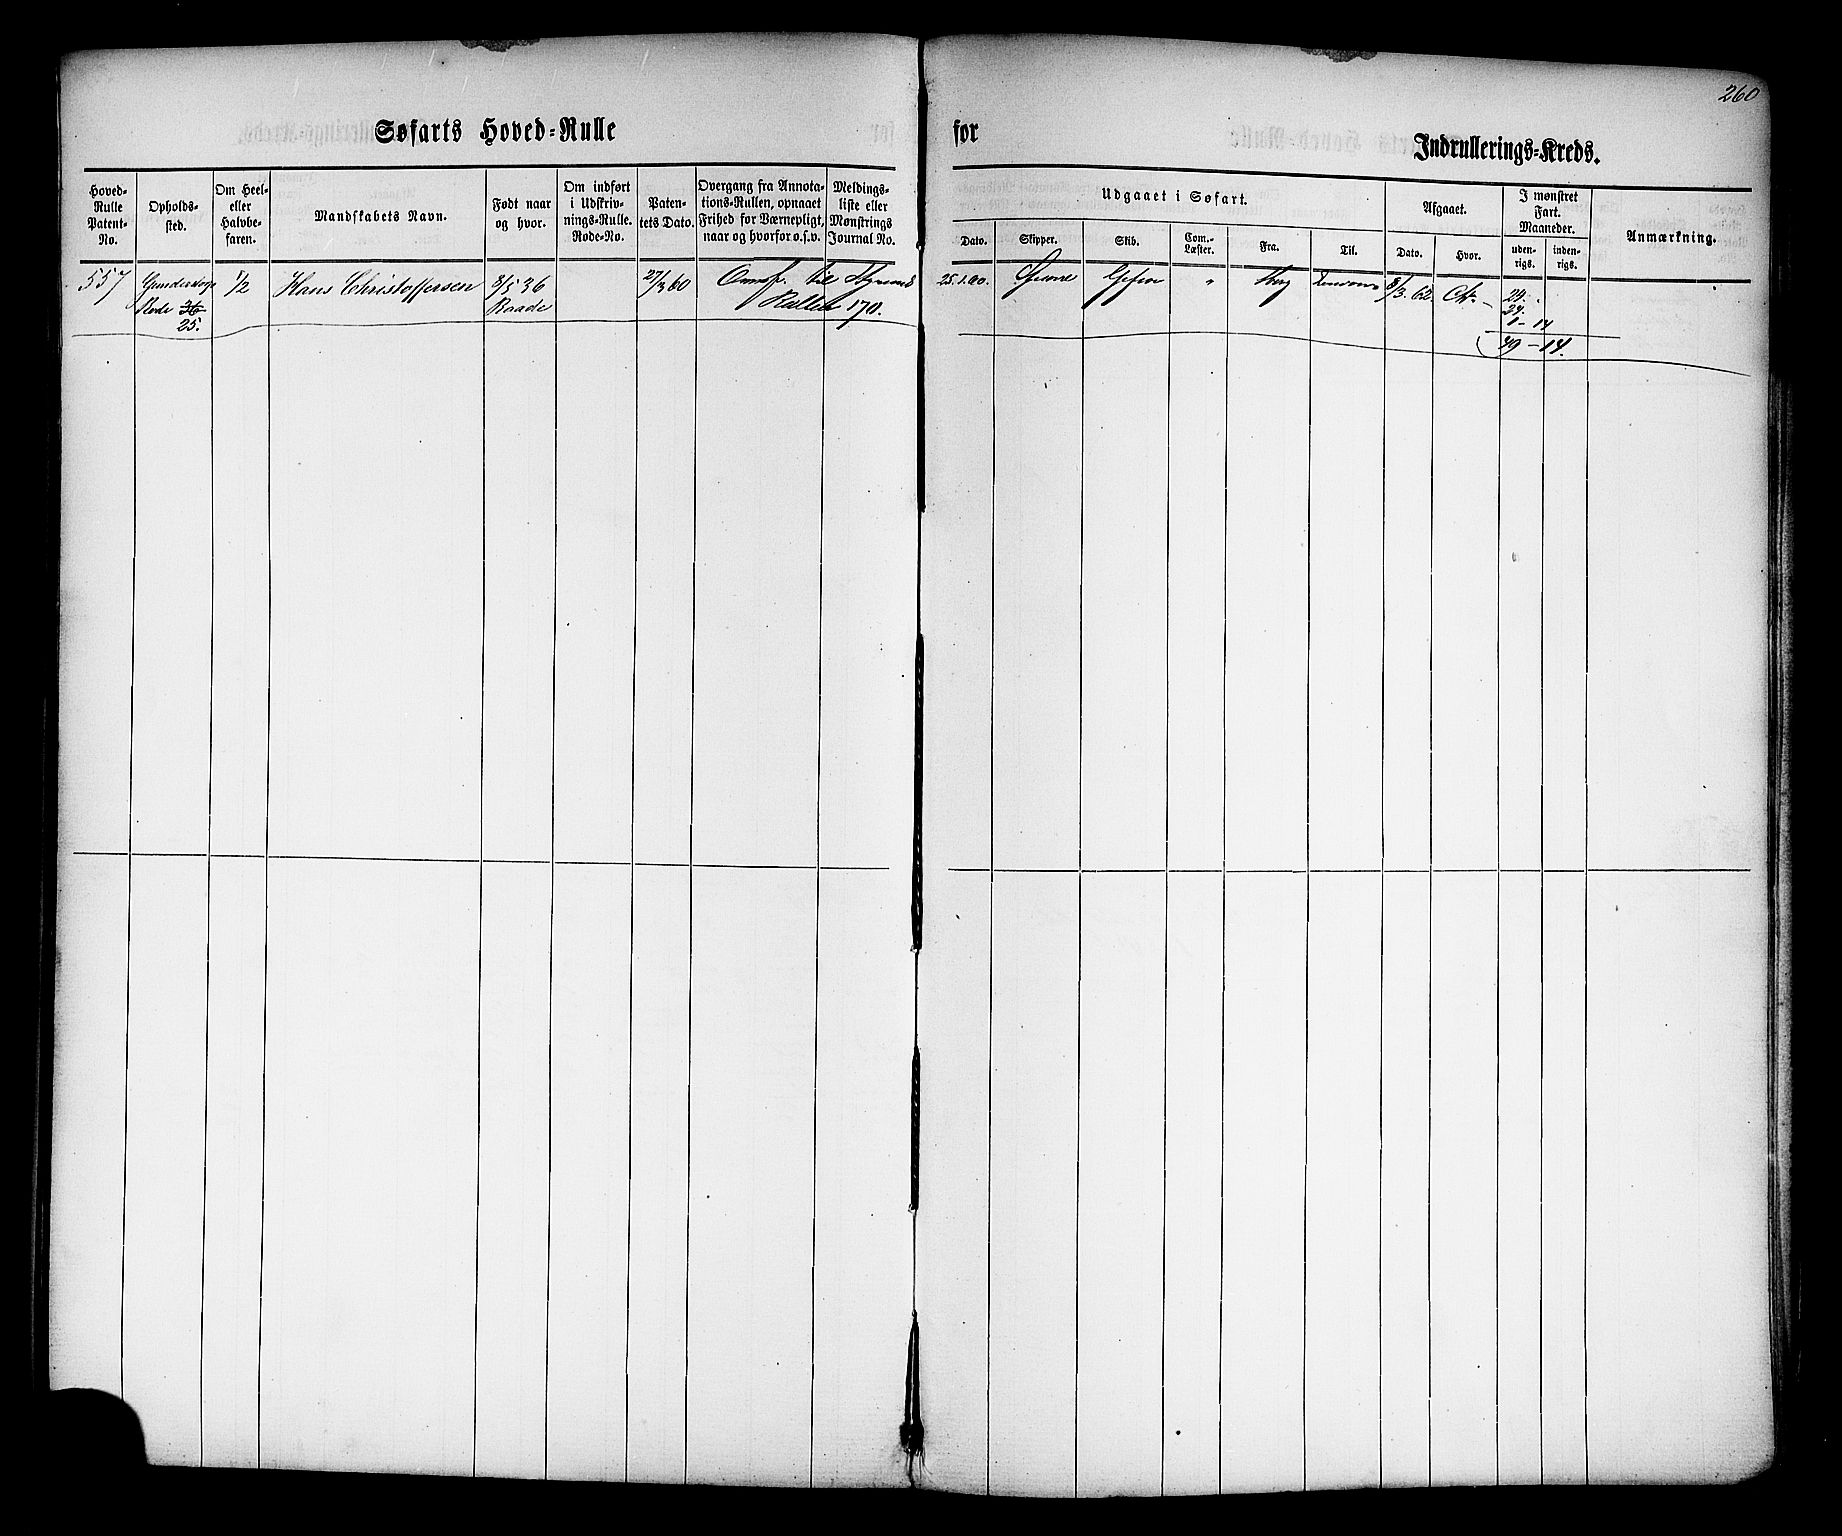 260
Søfarts Hoved-Rulle
for
Indrullerings-Kreds.
Hoved-
Rulle
Patent-
No.
Opholds-
sted.
Om Heel-
eller
Halvbe-
faren.
Mandskabets Navn.
Født naar
og hvor.
Om indført
i Udskriv-
nings-Rulle.
Rode-No.
Paten-
tets Dato.
Overgang fra Annota-
tions-Rullen, opnaaet
Frihed for Værnepligt,
naar og hvorfor o.s.v.
Meldings-
liste eller
Mønstrings
Journal No.
Udgaaet i Søfart.
Dato.
Skipper.
Skib.
Com.-
Læster.
Fra.
Til.
Afgaaet.
Dato.
Hvor.
I mønstret
Fart.
Maaneder.
uden-
rigs.
inden-
rigs.
Anmærkning.
557
Rode 36
25.
1/2
Hans Christoffersen
8/5 36
Raade
27/3 60
Omf. til Styrmands
Rullen 170.
25.1.60.
Gefion
"
8/3. 62.
29.
1-14
49-14.